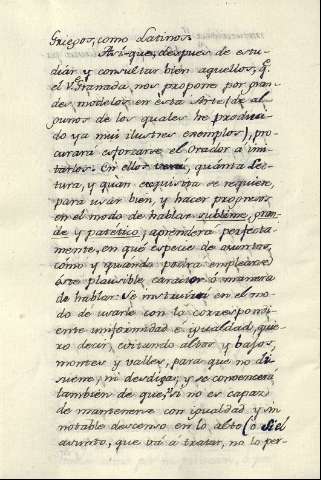 Griegos, como Latinos.
Así que, despues de estu-
diár y consultar bien aquellos, q.
el V. Granada nos propone por gran-
des modelos en esta Arte (de al-
gunos de los quales he produci-
do ya mui ilustres exemplos), pro-
curará esforzarse el Orador á imi-
tarlos. En ellos verá, quánta Lec-
tura, y quàn exquisita se requiere,
para usár bien, y hacer progresos
en el modo de hablar sublime, gran-
de y patético; aprenderá perfecta-
mente, en qué especie de asuntos,
cómo y quando podrá emplearse
éste plausible caracter ó manera
de hablar. Se instruirá en el mo-
do de usarle con la correspondi-
ente uniformidad è igualdad, quie-
ro decir, evitando altos y bajos,
montes y valles, para que no di-
suene, ni desdiga; y se convencerá
tambien de que, si no es capaz
de mantenerse con igualdad y sin
notable descenso en lo alto (ò si el
asunto, que vá á tratar, no lo per-